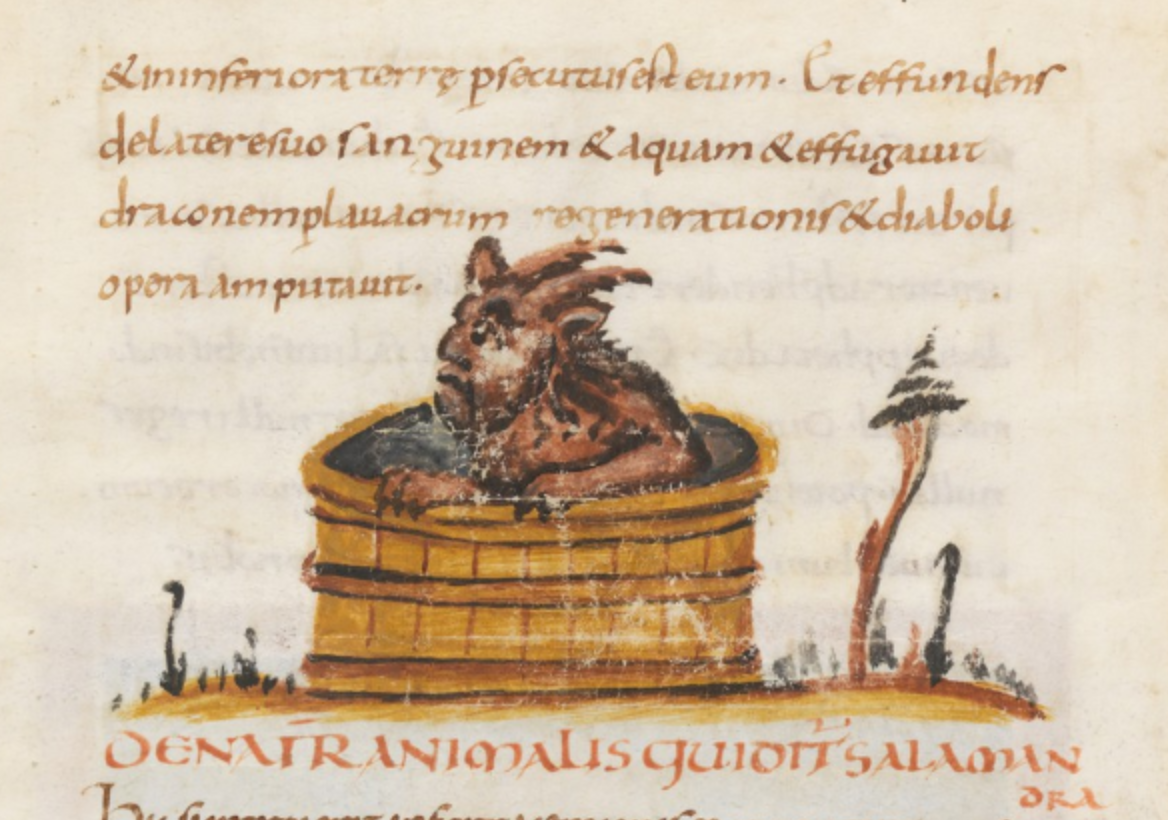 & ininferiora terrę psecutus est eum · Et effundens
de latere suo sanguinem & aquam & effugauit
draconem p lauacrum regenerationis & diaboli
opera amputauit ·
DE NATR ANIMALIS QUI DIT SALAMAN
DRA